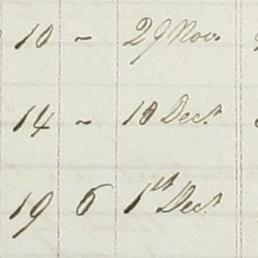 10 ~ 29 Nov.
14 ~ 18 Dect.
19 6 1st Dect.